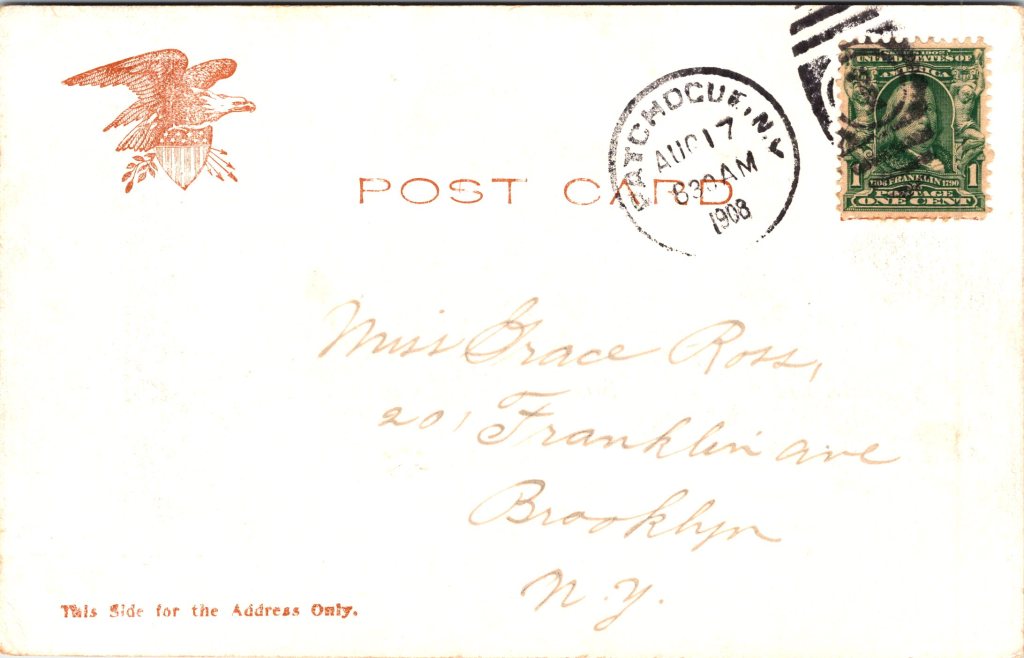 SERIES 1902
UNITED STATES OF
AMERICA
1 1
1706 FRANKLIN 1790
POSTAGE
ONE CENT
PATCHOGUE, N.Y.
AUG 17
830 AM
1908
POST CARD
Miss Grace Ross,
201 Franklin ave
Brooklyn
N.Y.
This Side for the Address Only.